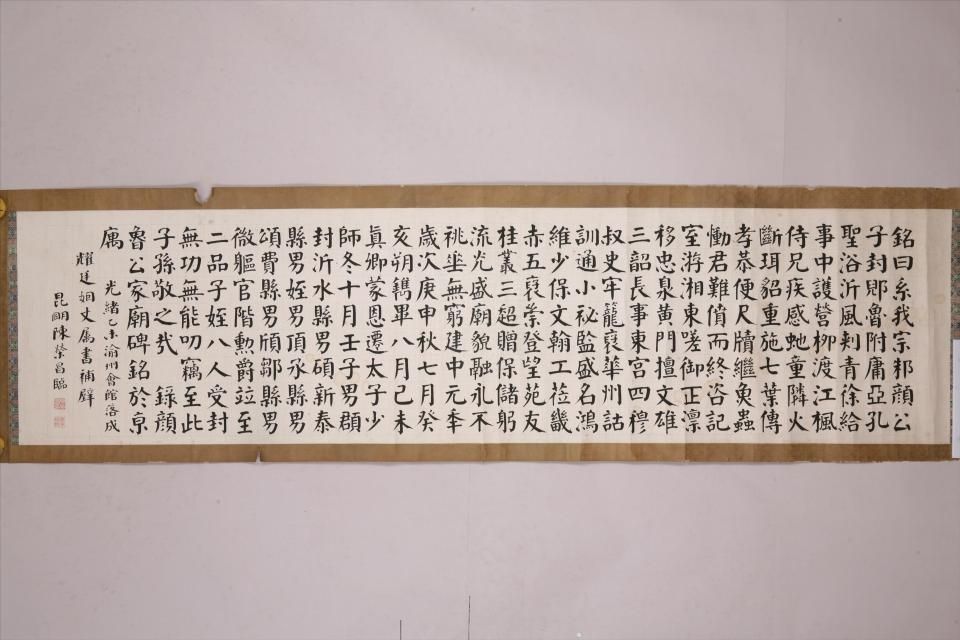 銘曰系我宗邾顏公
子封郳魯附庸亞孔
聖浴沂風刺青徐給
事中護營柳渡江楓
侍兄疾感虵童隣火
斷珥貂重施七葉傳
孝恭便尺牘繼奧蟲
慟君難償而終咨記
室游湘東嗟御正凛
移忠泉黃門擅文雄
三韶長事東宮四穆
叔史牢籠裒華州詁
訓通小祕監盛名鴻
維少保文翰工莅畿
赤五裒榮登望苑友
桂叢三超贈保儲躬
流光盛廟貌融永不
祧垂無窮建中元秊
歲次庚申秋七月癸
亥朔鐫畢八月己未
真卿蒙恩遷太子少
師冬十月壬子男頵
封沂水縣男碩新泰
縣男姪男頂承縣男
頌費縣男頎鄒縣男
微軀官階勲爵竝至
二品子姪八人受封
無功無能叨竊至此
子孫敬之㢤 錄顏
魯公家廟碑銘於京
寓
光緒乙未渝州會館落成
耀廷姻丈屬書補壁
昆明陳榮昌臨